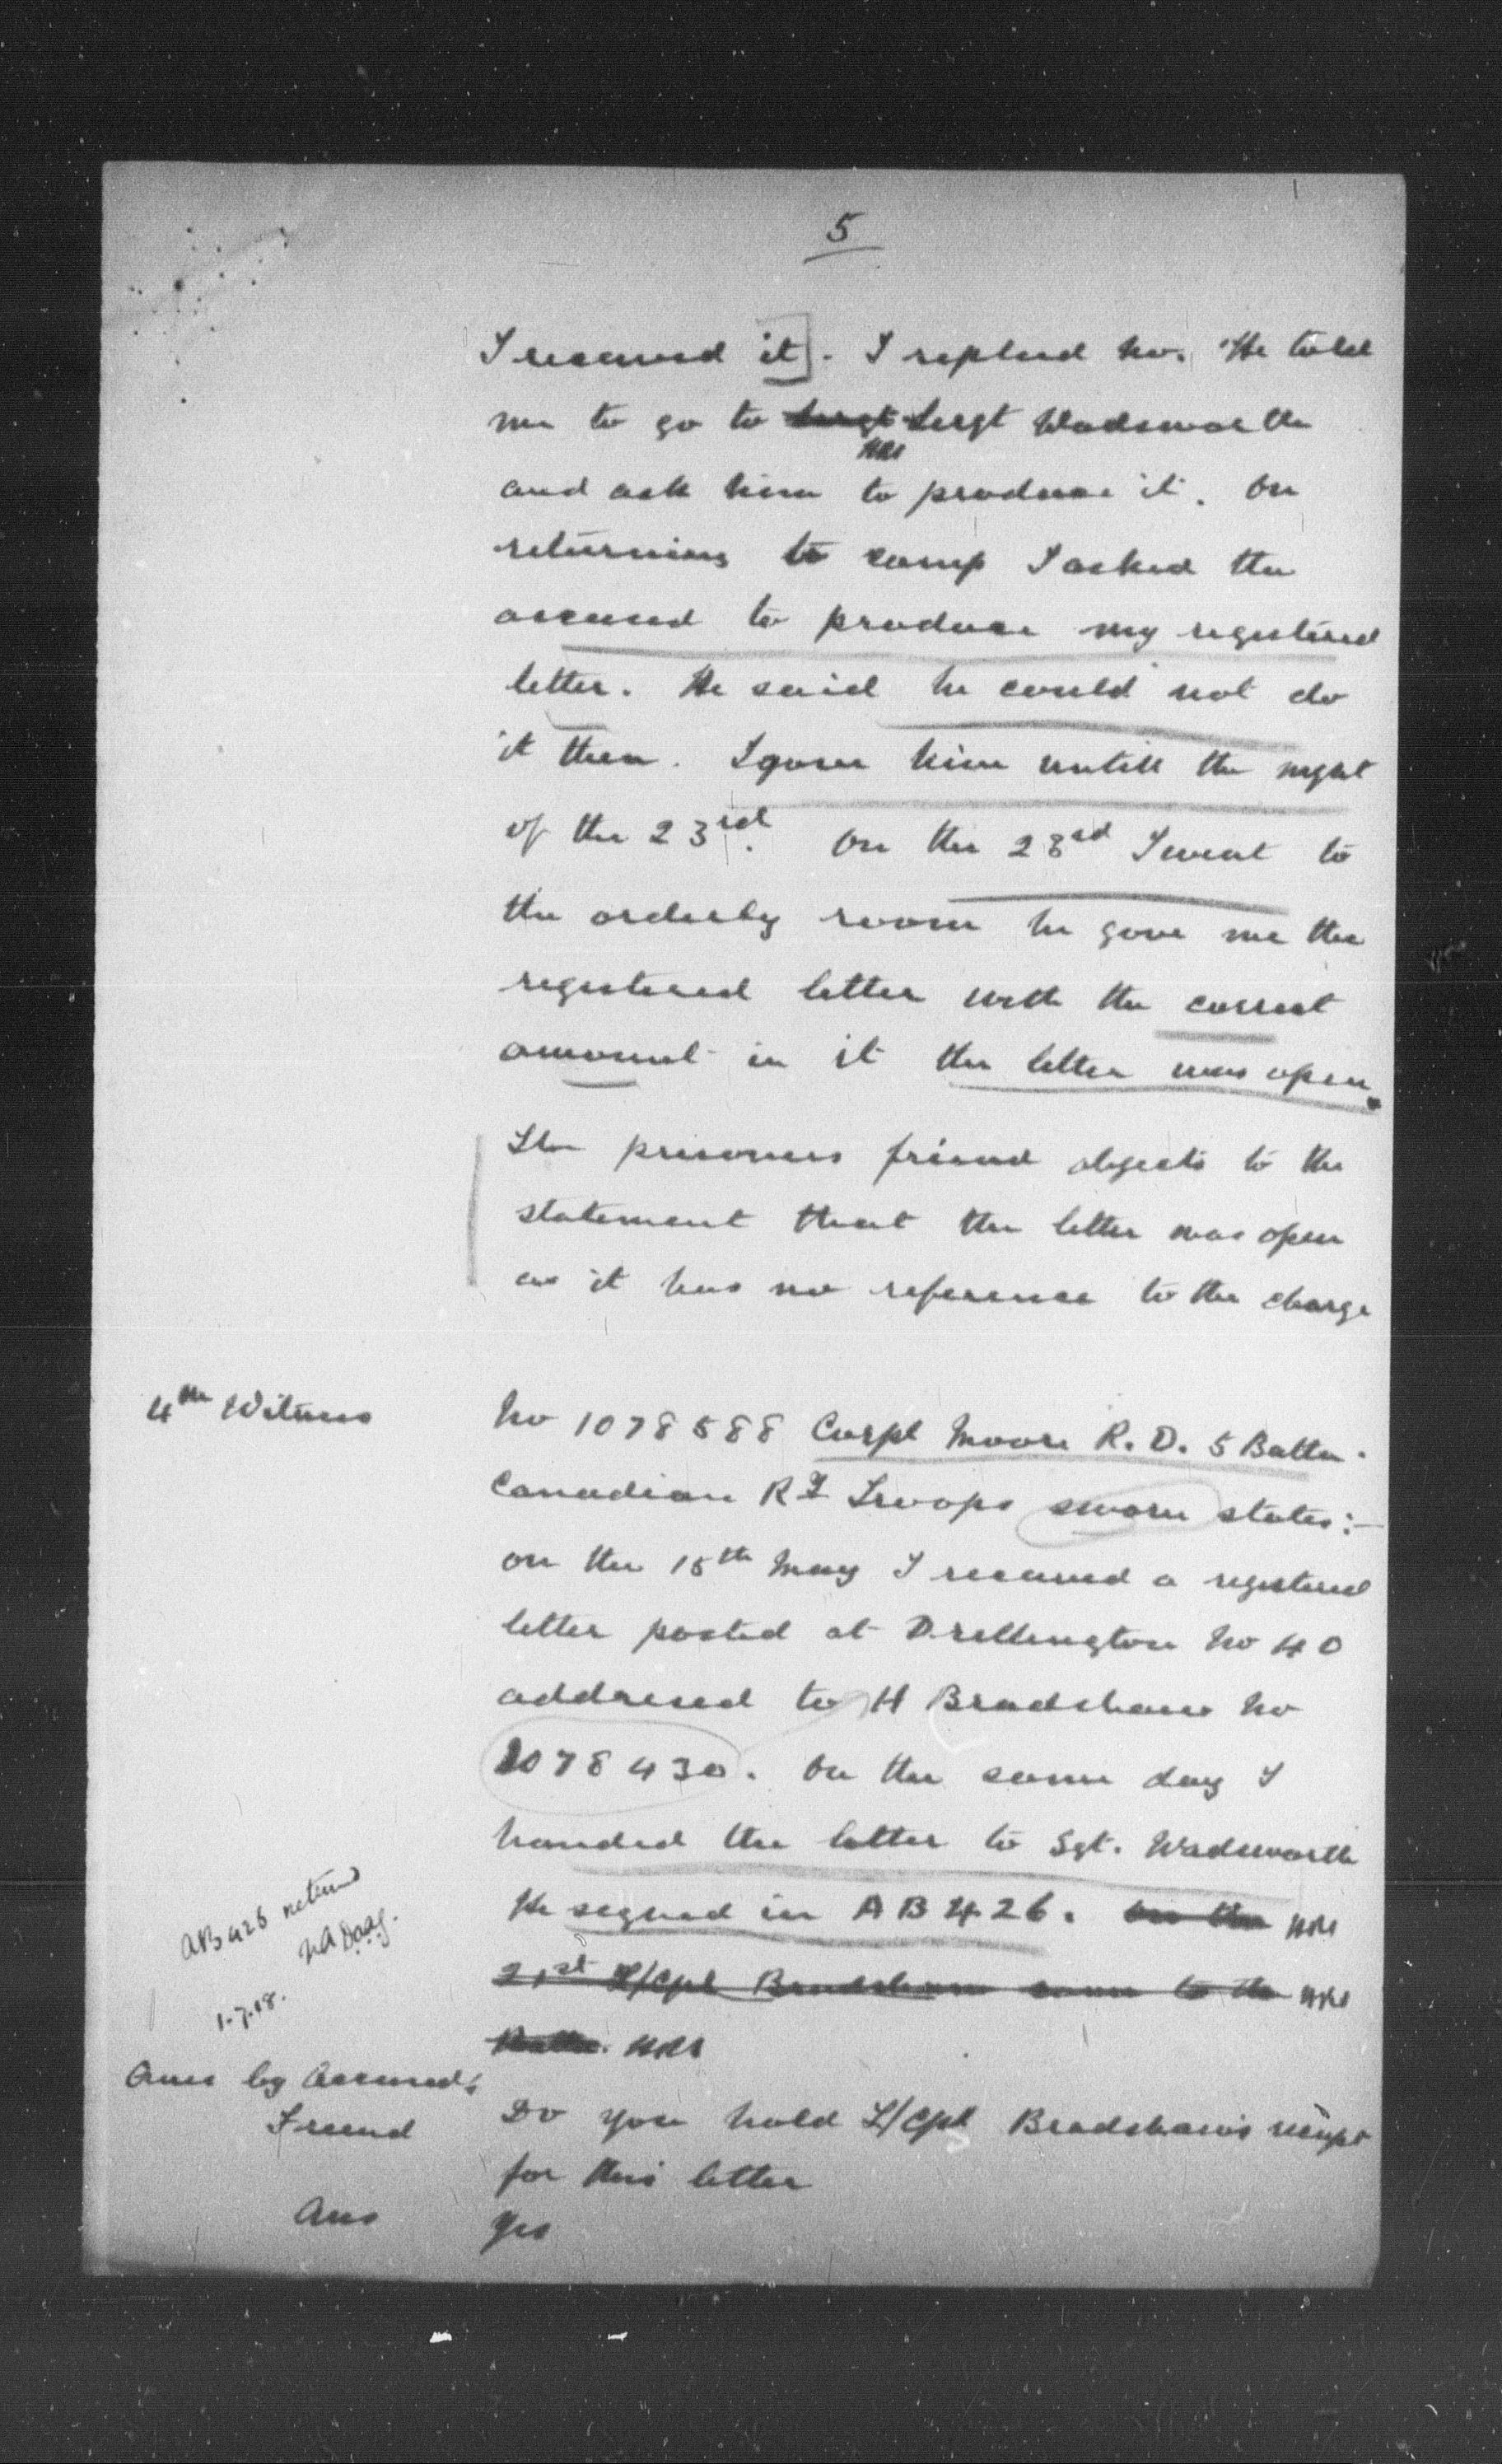 5
I received it]. I replied no. He told
me to go to ~~Sergt~~ Sergt Wadsworth
and ask him to produce it. On
returning to camp I asked the
accused to produce my registered
letter. He said he could not do
it then. I gave him untill the night
of the 23rd. On the 23rd I went to
the orderly room he gave me the
registered letter with the correct
amount in it the letter was open.
The prisoners friend objects to the
statement that the letter was open
as it has no reference to the charge
4th Witness
No 1078588 Corpl Moore R. D. 5 Battn.
Canadian Ry Troops sworn states:-
on the 15th May I received a registered
letter posted at Drellington No 40
addresed to H Bradshaw No
1078430. On the same day I
handed the letter to Sgt. Wadsworth
He signed in AB 426. ~~On the~~
~~21st L/Cpl Bradshaw came to the~~
AB 426 returned
1-7-18.
Ques by Accused's
Friend
Do you hold L/Cpl Bradshaw's reciept
for this letter
Ans
Yes